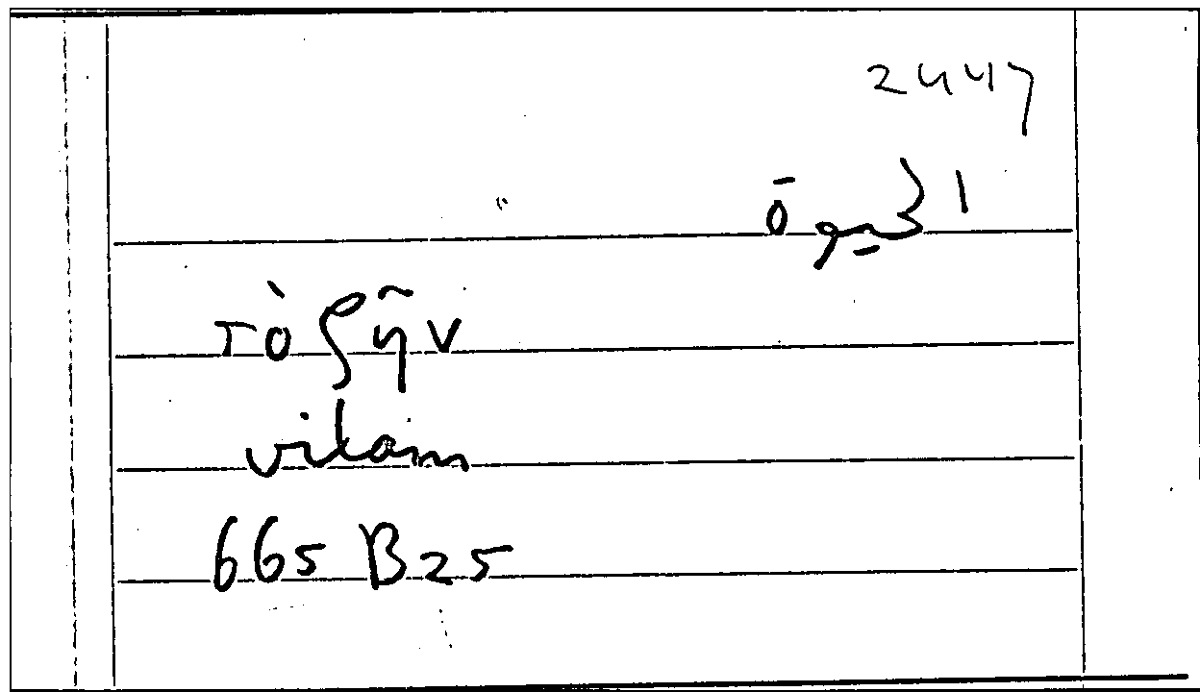 2447
الحيوة
τὸ ζῆν
vitam
665 B25